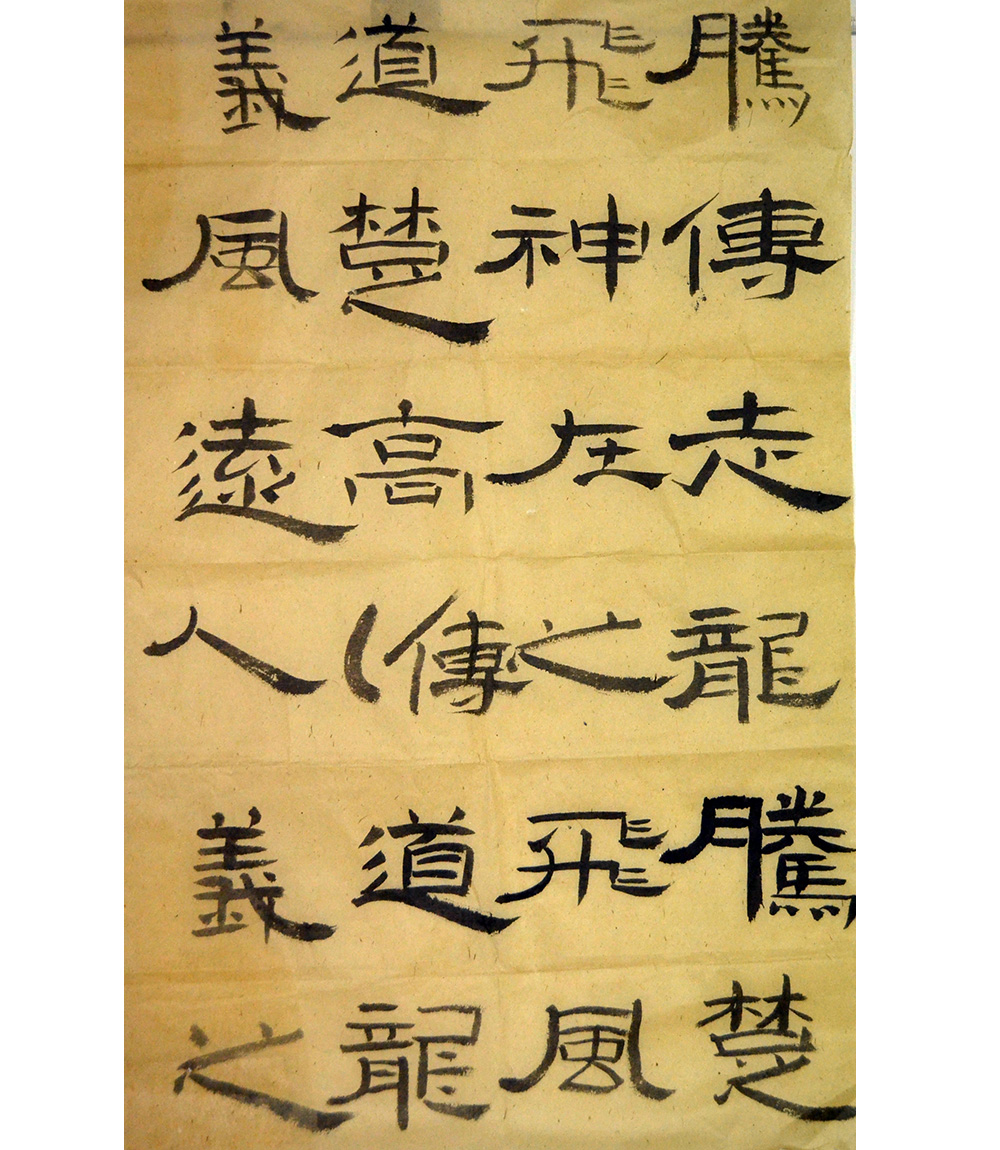 騰飛道義
傳神楚風
走在高遠
龍之傳人
騰飛道義
楚風龍之